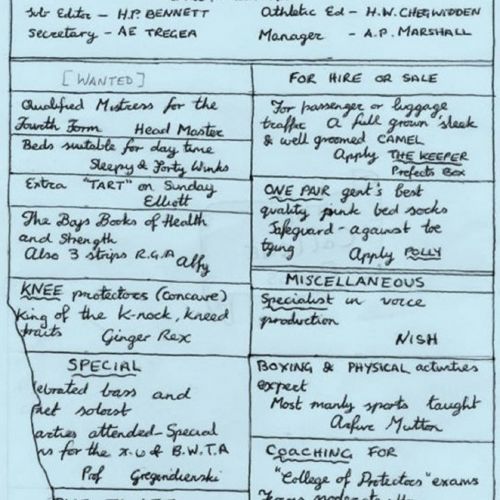 Sub Editor - H.P. BENNETT
Secretary - AE TREGEA
Athletic Ed - H.W. CHEGWIDDEN
Manager - A.P. MARSHALL
[WANTED]
Qualified Mistress for the
Fourth Form Head Master
Beds suitable for day time
Sleepy & Forty Winks
Extra "TART" on Sunday
Elliott
The Boys Books of Health
and Strength
Also 3 strips R.G.A Alfy
KNEE protectors (concave)
King of the K-nock, kneed
Ginger Rex
SPECIAL
bass and
soloist
attended - Special
for the & B.W.T.A
Prof
FOR HIRE OR SALE
For passenger or luggage
traffic A full grown sleek
& well groomed CAMEL
Apply THE KEEPER
Prefects Box
ONE PAIR gent's best
quality pink bed socks
Safeguard - against toe
tying Apply POLLY
MISCELLANEOUS
Specialist in voice
production
NISH
BOXING & PHYSICAL activities
expert
Most manly sports taught
Mutton
COACHING FOR
"College of Protectors" exams